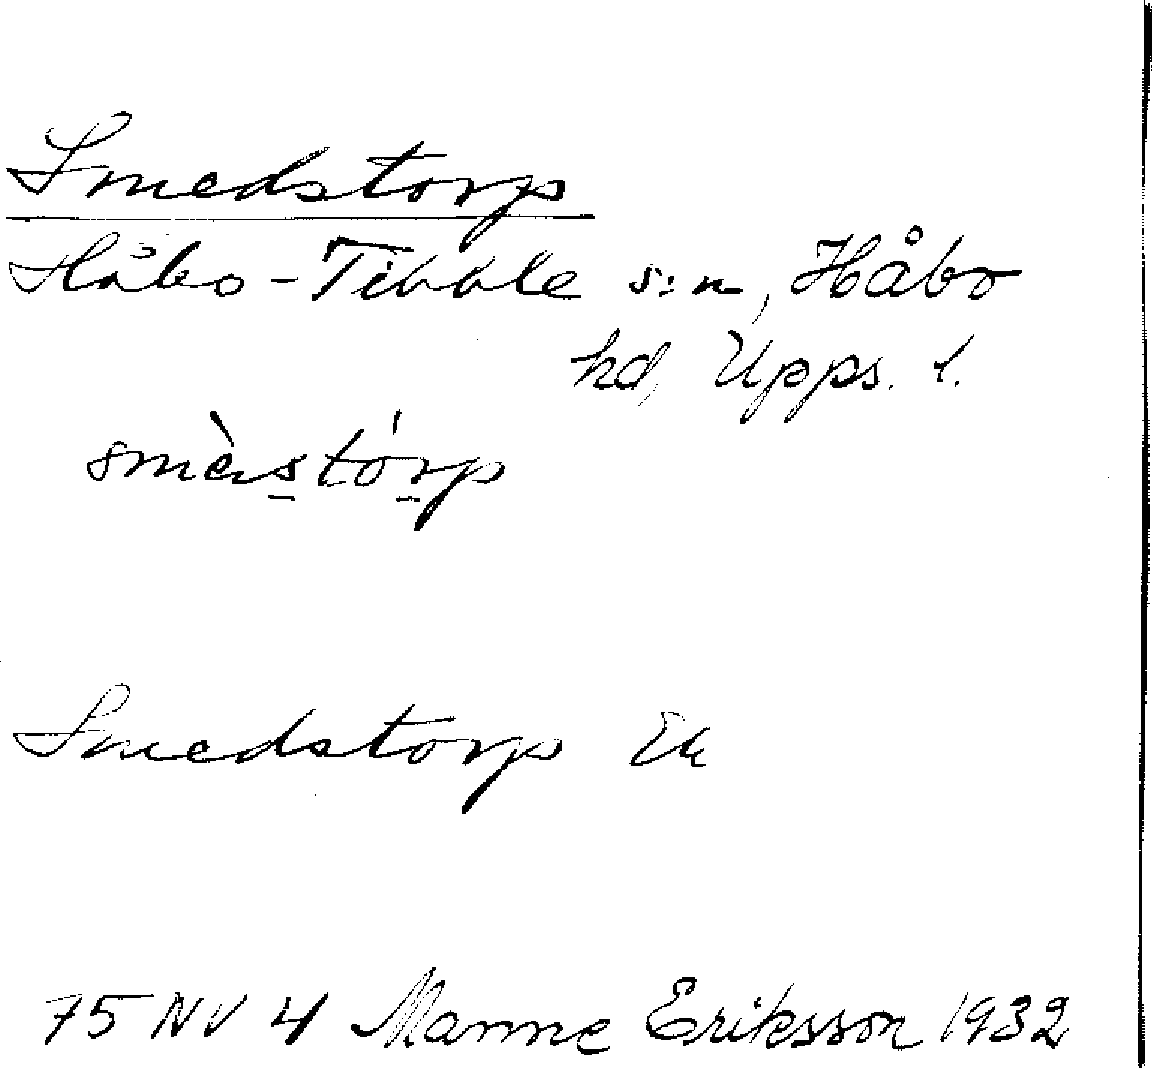 Smedstorp
Håbo-Tibble s:n, Håbo
hd, Upps. l.
smèstórp
Smedstorp Ek
75 NV 4 Manne Eriksson 1932